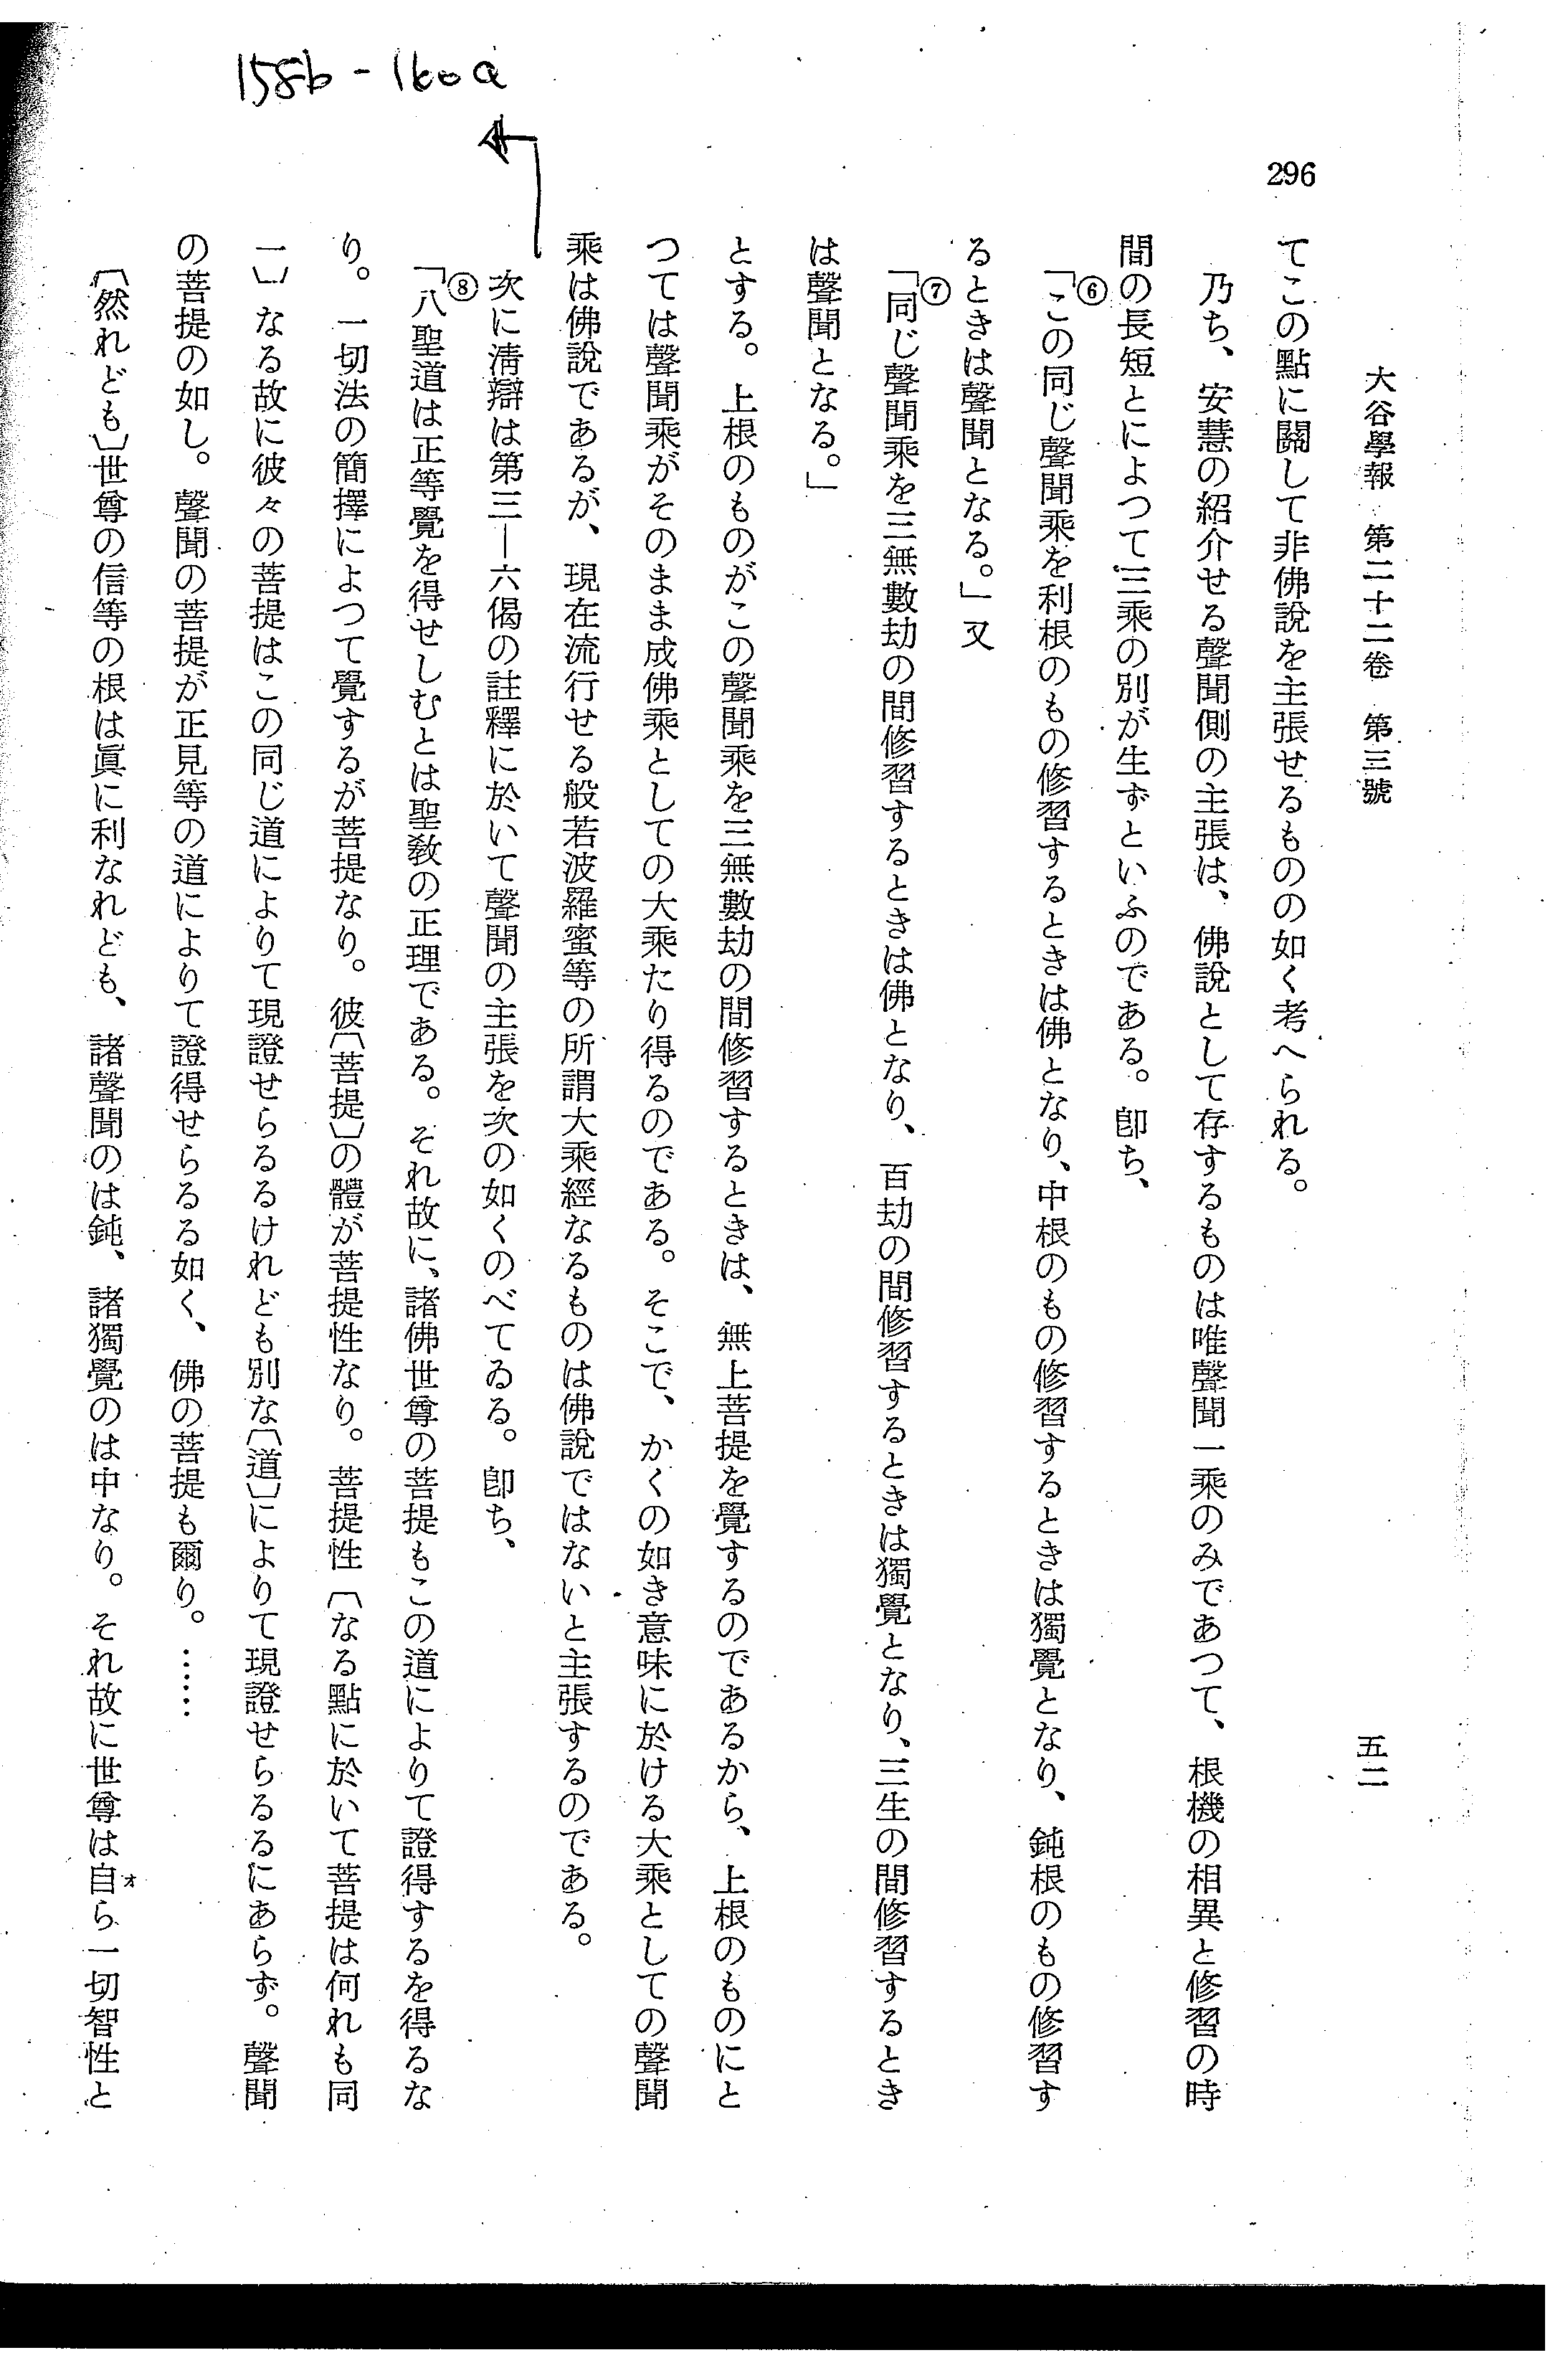 158b - 160a
296
大谷學報　第二十二卷　第三號
五二
てこの點に關して非佛說を主張せるものの如く考へられる。
乃ち、安慧の紹介せる聲聞側の主張は、佛說として存するものは唯聲聞一乘のみであつて、根機の相異と修習の時
間の長短とによつて三乘の別が生ずといふのである。卽ち、
⑥「この同じ聲聞乘を利根のもの修習するときは佛となり、中根のもの修習するときは獨覺となり、鈍根のもの修習す
るときは聲聞となる。」又
⑦「同じ聲聞乘を三無數劫の間修習するときは佛となり、百劫の間修習するときは獨覺となり、三生の間修習するとき
は聲聞となる。」
とする。上根のものがこの聲聞乘を三無數劫の間修習するときは、無上菩提を覺するのであるから、上根のものにと
つては聲聞乘がそのまま成佛乘としての大乘たり得るのである。そこで、かくの如き意味に於ける大乘としての聲聞
乘は佛說であるが、現在流行せる般若波羅蜜等の所謂大乘經なるものは佛說ではないと主張するのである。
次に淸辯は第三—六偈の註釋に於いて聲聞の主張を次の如くのべてゐる。卽ち、
⑧「八聖道は正等覺を得せしむとは聖敎の正理である。それ故に、諸佛世尊の菩提もこの道によりて證得するを得るな
り。一切法の簡擇によつて覺するが菩提なり。彼〔菩提〕の體が菩提性なり。菩提性〔なる點に於いて菩提は何れも同
一〕なる故に彼々の菩提はこの同じ道によりて現證せらるるけれども別な〔道〕によりて現證せらるるにあらず。聲聞
の菩提の如し。聲聞の菩提が正見等の道によりて證得せらるる如く、佛の菩提も爾り。……
〔然れども〕世尊の信等の根は眞に利なれども、諸聲聞のは鈍、諸獨覺のは中なり。それ故に世尊は自ら一切智性と
オ